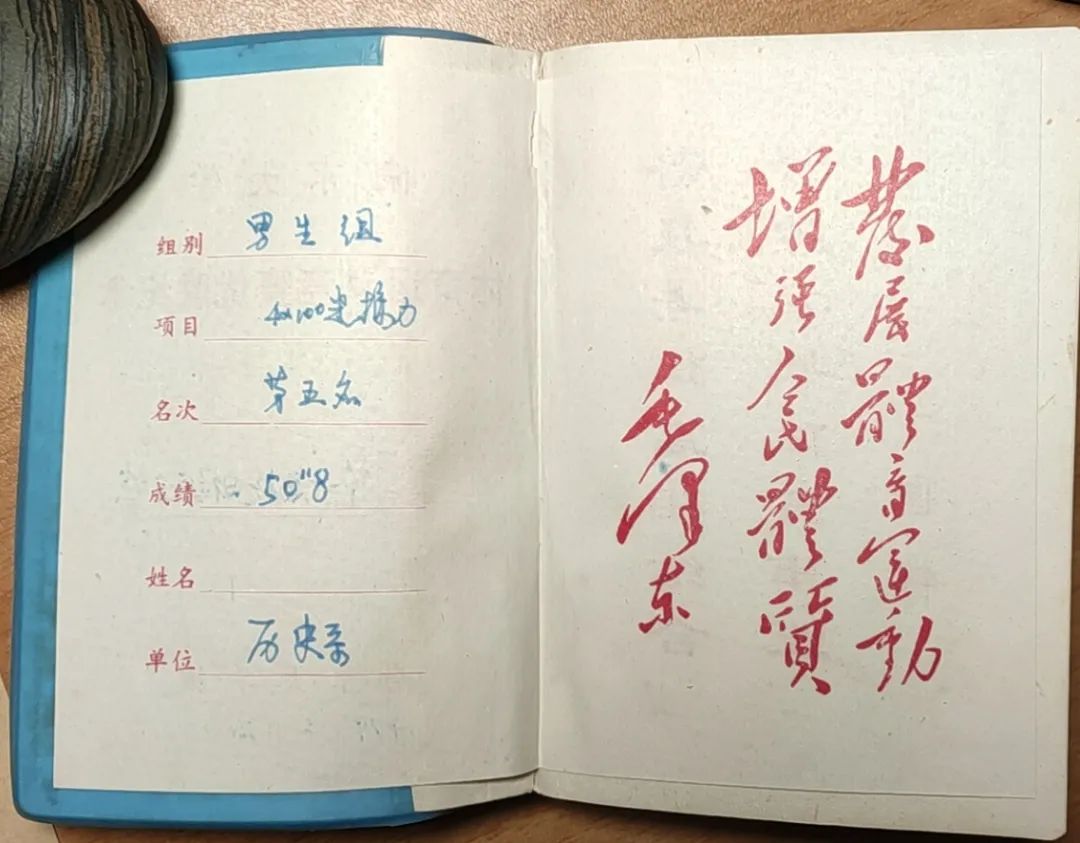 组别 男生组
项目 4x100米接力
名次 第五名
成绩 50"8
姓名
单位 历史系
發展體育運動
增强人民體質
毛澤东